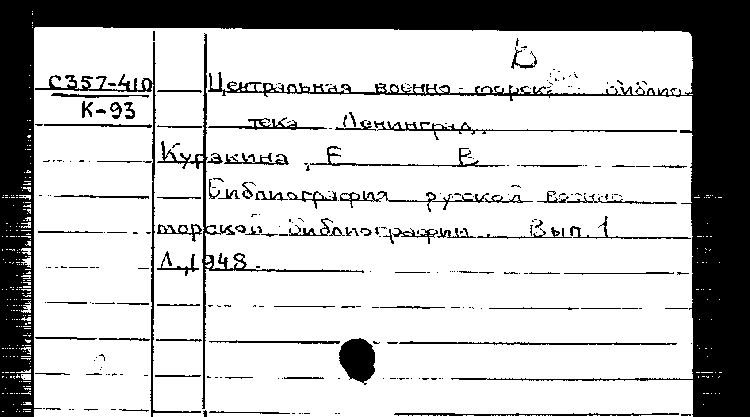 В
С357-410 Центральная военно-морская библио-
К-93
тека Ленинград.
Куракина, Е В
Библиография русской военно
морской библиографии. Вып. 1
Л., 1948.